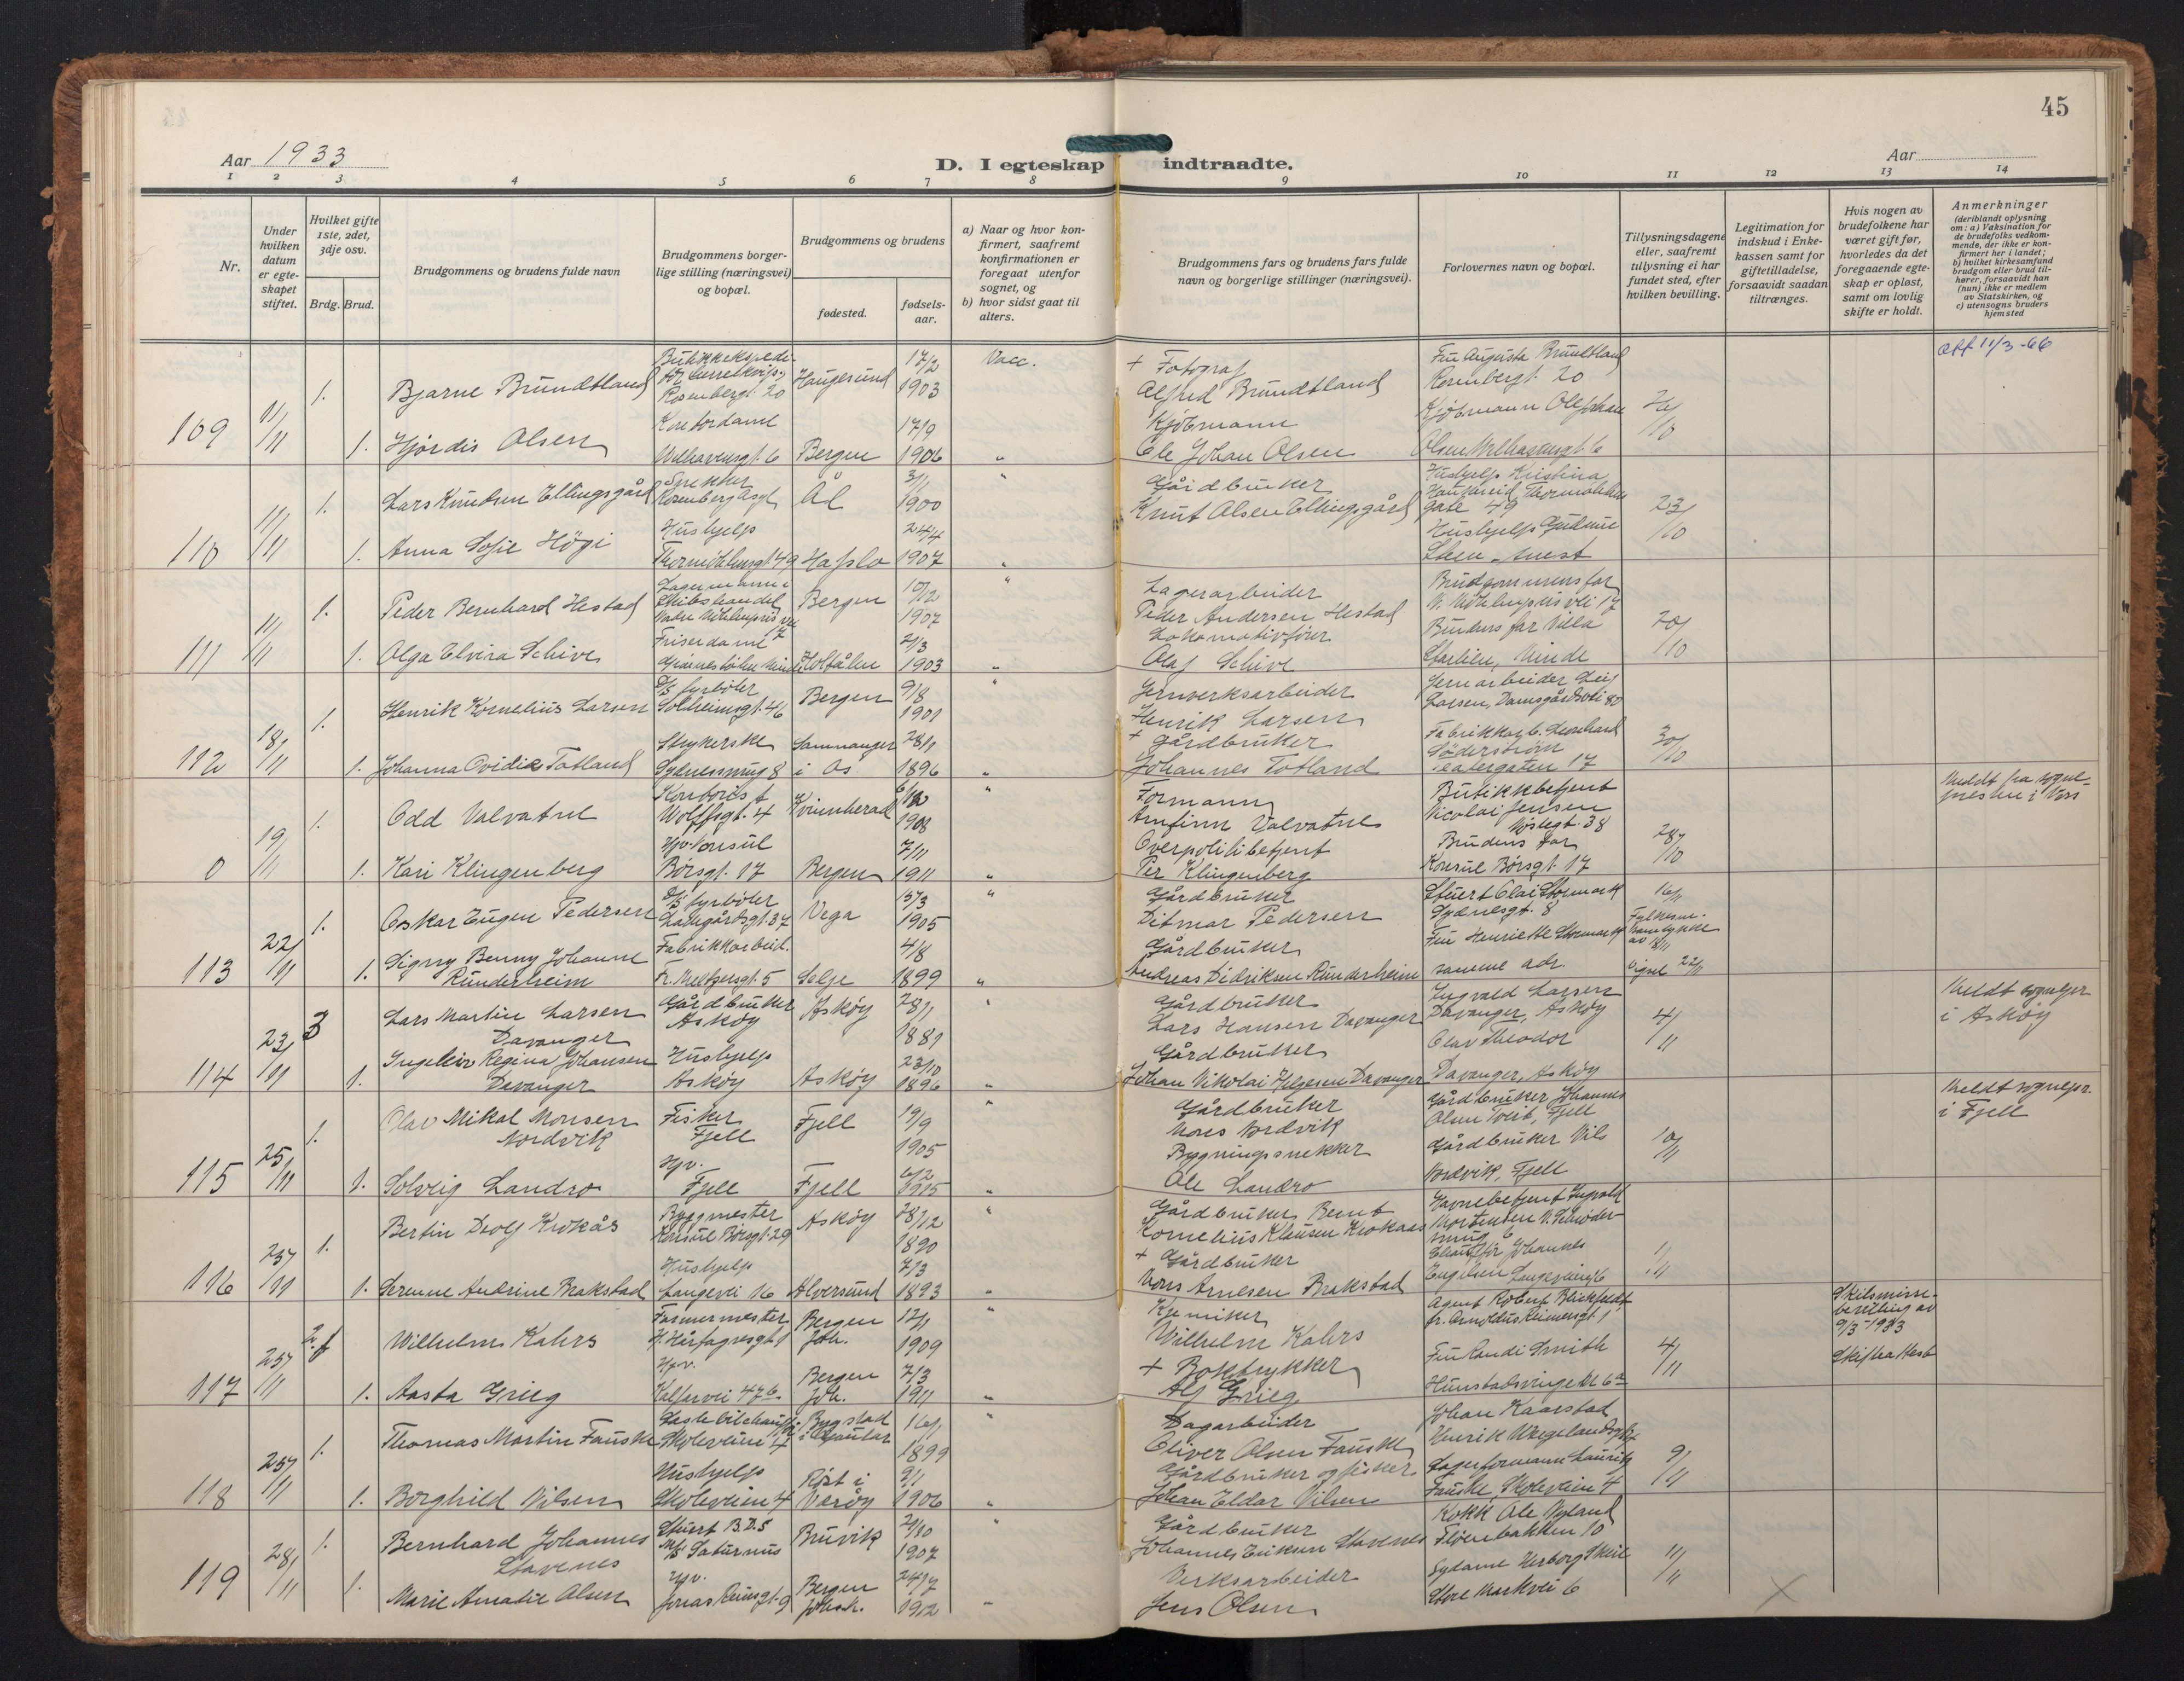 45
Aar 1933
D. I egteskap indtraadte.
Aar
1 2 3 4 5 6 7 8 9 10 11 12 13 14
Nr.
Under hvilken datum er egteskapet stiftet.
Hvilket gifte 1ste, 2det, 3dje osv.
Brdg. Brud.
Brudgommens og brudens fulde navn
Brudgommens borgerlige stilling (næringsvei) og bopæl.
Brudgommens og brudens
fødested.
fødselsaar.
a) Naar og hvor konfirmert, saafremt konfirmationen er foregaat utenfor sognet, og
b) hvor sidst gaat til alters.
Brudgommens fars og brudens fars fulde navn og borgerlige stillinger (næringsvei).
Forlovernes navn og bopæl.
Tillysningsdagene eller, saafremt tillysning ei har fundet sted, efter hvilken bevilling.
Legitimation for indskud i Enkekassen samt for giftetilladelse, forsaavidt saadan tiltrænges.
Hvis nogen av brudefolkene har været gift før, hvorledes da det foregaaende egteskap er opløst, samt om lovlig skifte er holdt.
Anmerkninger
(deriblandt oplysning om: a) Vaksination for de brudefolks vedkommende, der ikke er konfirmert her i landet; b) hvilket kirkesamfund brudgom eller brud tilhører, forsaavidt han (hun) ikke er medlem av Statskirken, og c) utensogns bruders hjemsted
109 11/11
1. Bjarne Brundtland Rosenbergt. 20 Haugesund 17/2 1903 Vacc. + Fotograf Alfred Brundtland Fru Augusta Brundtland Rosenbergt. 20 att 11/3-66
1. Hjørdis Olsen Kontordame Welhavensgt. 6 Bergen 17/9 1906 " Kjøbmann Ole Johan Olsen Kjøbmann Ole Johan Olsen Welhavensgt. 6 26/10
110 11/11
1. Lars Knudsen Ellingsgård Snekker Rosenbergsgt. Ål 3/1 1900 " Gårdbruker Knut Olsen Ellingsgård Hushjelp Kristina gate 49 23/10
1. Anna Sofie Høgi Hushjelp Thormøhlensgt. 49 Hafslo 24/4 1907 " Hushjelp Gudrun
111 11/11
1. Peder Bernhard Hestad Bergen 10/12 1907 " Lagerarbeider Peder Andersen Hestad Brudgommens far 17
1. Olga Elvira Schive Friserdame Holtålen 2/3 1903 " Lokomotivfører Olaf Schive Brudens far Villa Minde 20/10
112 18/11
1. Henrik Kornelius Larsen D/S fyrbøter Solheimsgt. 46 Bergen 9/8 1901 " Jernverksarbeider Henrik Larsen Jernarbeider Leif Larsen, Damsgårdsvei 80
1. Johanna Ovidia Totland Strykerske Sydnessmug 8 Samnanger i Os 28/1 1896 " + Gårdbruker Johannes Totland Fabrikkarb. Leonhard Söderström Teatergaten 17 30/10
0 19/11
1. Odd Valvatne Kontorist Wolffsgt. 4 Kvinnherad 1908 " Formann Arnfinn Valvatne Butikkbetjent Nicolai Jensen Nøstegt. 38 Meldt fra sognepresten i Voss
1. Kari Klingenberg Hjv. Konsul Børsgt. 17 Bergen 7/11 1911 " Overpolitibetjent Per Klingenberg Brudens far Konsul Børsgt. 17 28/10
113 22/11
1. Oskar Eugen Pedersen D/S fyrbøter Ladegårdsgt. 37 Vega 13/3 1905 " Gårdbruker Ditmar Pedersen Stuert Olai Stormark Sydnesgt. 8 16/11
1. Signy Benny Johanne Runderheim Fabrikkarbeid. Fr. Meltzersgt. 5 Selje 4/8 1899 " Gårdbruker Andreas Didriksen Runderheim Fru Henriette Stormark samme adr. av 18/11 Vigsel 22/11
114 23/11
3 Lars Martin Larsen Davanger Gårdbruker Askøy Askøy 28/1 1881 " Gårdbruker Lars Hansen Davanger Ingvald Larsen Davanger, Askøy 4/11 Meldt sognepr. i Askøy
1. Regina Johansen Davanger Hushjelp Askøy Askøy 23/10 1896 " Gårdbruker Johan Nikolai Helgesen Davanger Olav Theodor Davanger, Askøy
115 25/11
1. Olav Mikal Monsen Nordvik Fisker Fjell Fjell 19/9 1905 " Gårdbruker Mons Nordvik Gårdbruker Johannes Olsen Fjell Meldt sognepr. i Fjell
1. Solveig Landro Hjv. Fjell Fjell 6/2 1915 " Bygningsnekker Ole Landro Gårdbruker Nils Nordvik, Fjell 10/11
116 25/11
1. Bertin Deolf Krokås Byggmester Konsul Børsgt. 29 Askøy 28/12 1890 " Gårdbruker Bernt Kornelius Klausen Krokaas Havnebetjent Ingvald Mortensen smug 6
1. Serenne Andrine Brakstad Hushjelp Langevei 16 Alversund 7/3 1893 " + Gårdbruker Mons Arnesen Brakstad Johannes Engelsen Langeveien 16 1/11
117 25/11
2.f Wilhelm Kahrs Farmermester H. Hårfagresgt. 1 Bergen Joh. 12/1 1909 " Kjemiker Wilhelm Kahrs Agent Robert Blickfeldt fr. Arnoldus Reimersgt. 1 Skilsmissebevilling av 9/3-1933
1. Aasta Grieg Hjv. Kalfarvei 47b. Bergen Joh. 7/3 1911 " + Boktrykker Alf Grieg Fru Randi Smith 4/11
118 25/11
1. Thomas Martin Fauske Lastebilchauffør Skoleveien 4 Bygstad i Gaular 16/1 1899 " Dagarbeider Oliver Olsen Fauske Johan Kaarstad
1. Borghild Nilsen Hushjelp Skoleveien 4 Røst i Værøy 9/1 1906 " Gårdbruker og fisker Johan Eldar Nilsen Lagerformann Laurits Fauske, Skoleveien 4 9/11
119 28/11
1. Bernhard Johannes Stavenes Stuert B.D.S M/S Saturnus Bruvik 29/10 1907 " Gårdbruker Johannes Eriksen Stavenes Kokk Ole Nyland Fløenbakken 10
1. Marie Amalie Olsen Hjv. Jonas Reinsgt. 9 Bergen Johsk. 24/7 1912 " Verksarbeider Jens Olsen Sydame Herborg Store Markvei 6 11/11 X